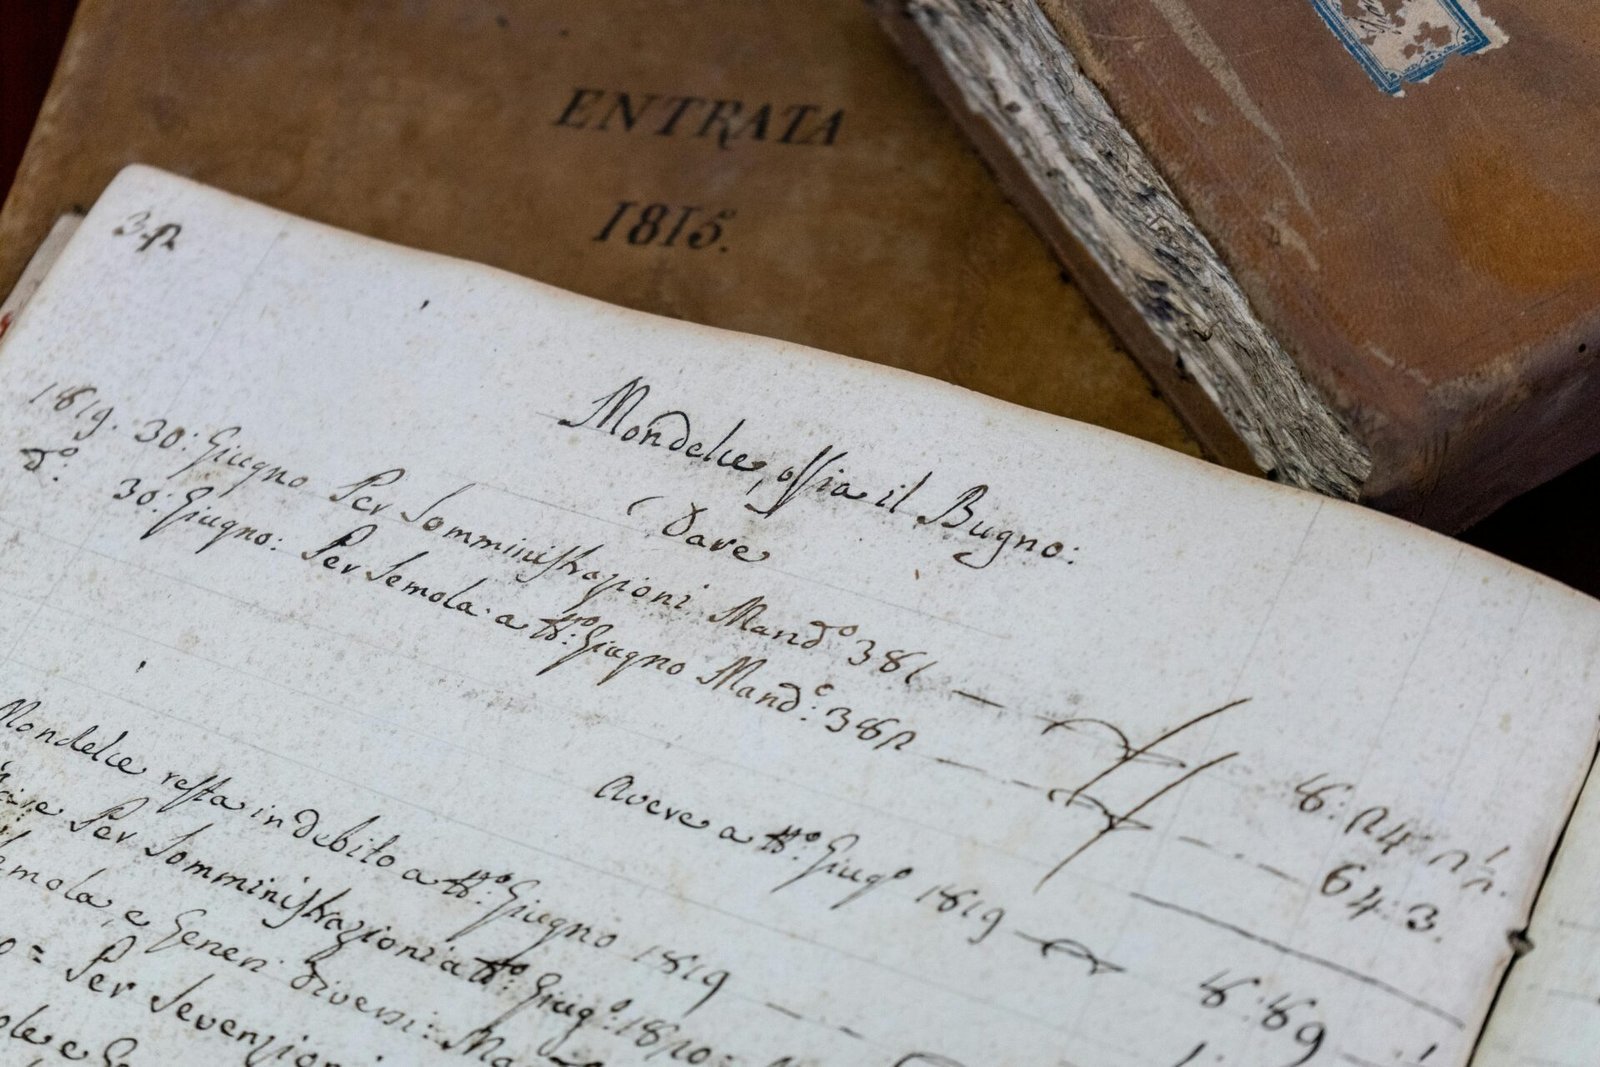 ENTRATA
1815.
32
Mondelce, ossia il Bugno:
Dare
1819. 30: Giugno Per Somministrazioni Mand.º 381 — 8: 24: 2 1/2.
d.º: 30: Giugno: Per Semola a tt.º: Giugno Mand.º: 382 — 64: 3.
Avere a tt.º: Giug.º 1819 — 8: 89
Mondelce resta in debito a tt.º: Giugno 1819 —
Per Somministrazioni a tt.º: Giug.º: 1820:
e Generi diversi:
= Per Sovenzioni
e